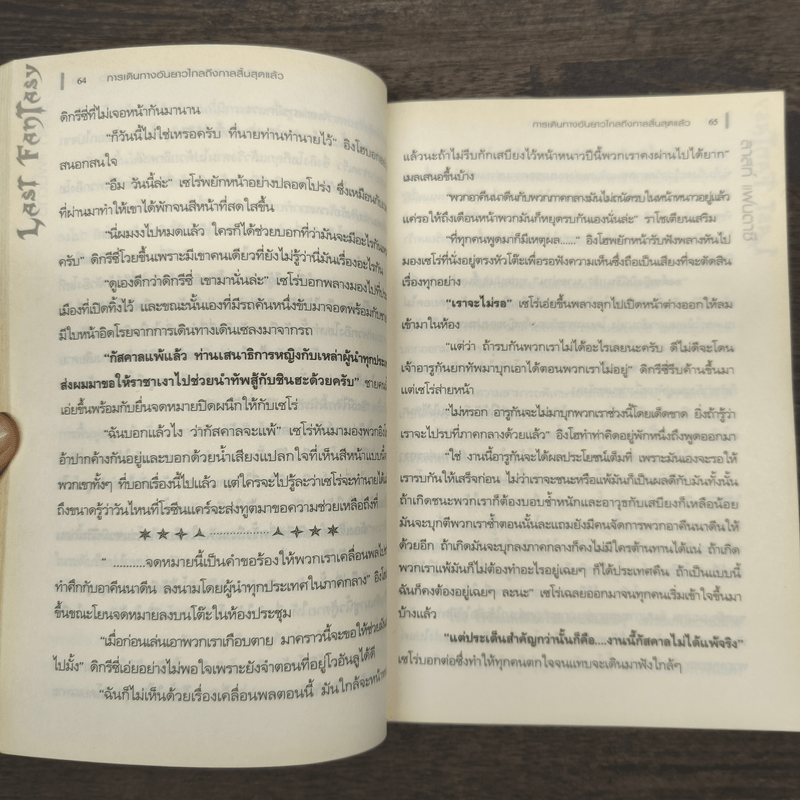 Last Fantasy
64 การเดินทางอันยาวไกลถึงกาลสิ้นสุดแล้ว
ดิกรีซี่ที่ไม่เจอหน้ากันมานาน
"ก็วันนี้ไม่ใช่เหรอครับ ที่นายท่านทำนายไว้" อิงโฮบอก
สนอกสนใจ
"อืม วันนี้ล่ะ" เซโร่พยักหน้าอย่างปลอดโปร่ง ซึ่งเหมือนกับ
ที่ผ่านมาทำให้เขาได้พักจนสีหน้าที่สดใสขึ้น
"นี่ผมงงไปหมดแล้ว ใครก็ได้ช่วยบอกทีว่ามันจะมีอะไรกัน
ครับ" ดิกรีซี่โวยขึ้นเพราะมีเขาคนเดียวที่ยังไม่รู้ว่านี่มันเรื่องอะไรกัน
"ดูเองดีกว่าดิกรีซี่ เขามานั่นล่ะ" เซโร่บอกพลางมองไปที่
เมืองที่เปิดทิ้งไว้ และขณะนั้นเองที่มีรถคันหนึ่งขับมาจอดพร้อมกับ
มีใบหน้าอิดโรยจากการเดินทางเดินเซลงมาจากรถ
"กัสคาลแพ้แล้ว ท่านเสนาธิการหญิงกับเหล่าผู้นำทุกประเทศ
ส่งผมมาขอให้ราชาเงาไปช่วยนำทัพสู้กับชินฮะด้วยครับ" ชาย
เอ่ยขึ้นพร้อมกับยื่นจดหมายปิดผนึกให้กับเซโร่
"ฉันบอกแล้วไง ว่ากัสคาลจะแพ้" เซโร่หันมามองพวกอิงโฮ
อ้าปากค้างกันอยู่และบอกด้วยน้ำเสียงแปลกใจที่เห็นสีหน้าแบบนั้น
พวกเขาทั้งๆ ที่บอกเรื่องนี้ไปแล้ว แต่ใครจะไปรู้ละว่าเซโร่จะทำนายได้
ถึงขนาดรู้ว่าวันไหนที่โรซีนแคร์จะส่งทูตมาขอความช่วยเหลือถึงที่
" ..........จดหมายนี้เป็นคำขอร้องให้พวกเราเคลื่อนพลไป
ทำศึกกับอาคีนนาดีน ลงนามโดยผู้นำทุกประเทศในภาคกลาง" อิงโฮ
ขึ้นขณะโยนจดหมายลงบนโต๊ะในห้องประชุม
"เมื่อก่อนเล่นเอาพวกเราเกือบตาย มาคราวนี้จะขอให้ช่วย
ไปมั้ง" ดิกรีซี่เอ่ยอย่างไม่พอใจเพราะยังจำตอนที่อยู่โวอันลูได้ดี
"ฉันก็ไม่เห็นด้วยเรื่องเคลื่อนพลตอนนี้ มันใกล้จะหน้า
การเดินทางอันยาวไกลถึงกาลสิ้นสุดแล้ว 65
ลาสท์ แฟนตาซี
แล้วนะถ้าไม่รีบกักเสบียงไว้หน้าหนาวปีนี้พวกเราคงผ่านไปได้ยาก"
เมลเสนอขึ้นบ้าง
"พวกอาคีนนาดีนกับพวกภาคกลางมันไม่ถนัดรบในหน้าหนาวอยู่แล้ว
แค่รอให้ถึงเดือนหน้าพวกมันก็หยุดรบกันเองนั่นล่ะ" ราโชเดียนเสริม
"ที่ทุกคนพูดมาก็มีเหตุผล......" อิงโฮพยักหน้ารับฟังพลางหันไป
มองเซโร่ที่นั่งอยู่ตรงหัวโต๊ะเพื่อรอฟังความเห็นซึ่งถือเป็นเสียงที่จะตัดสิน
เรื่องทุกอย่าง
"เราจะไม่รอ" เซโร่เอ่ยขึ้นพลางลุกไปเปิดหน้าต่างออกให้ลม
เข้ามาในห้อง
"แต่ว่า ถ้ารบกันพวกเราไม่ได้อะไรเลยนะครับ ดีไม่ดีจะโดน
เจ้าอารูกันยกทัพมาบุกเอาได้ตอนพวกเราไม่อยู่" ดิกรีซี่รีบค้านขึ้นมา
แต่เซโร่ส่ายหน้า
"ไม่หรอก อารูกันจะไม่มาบุกพวกเราช่วงนี้โดยเด็ดขาด ยิ่งถ้ารู้ว่า
เราจะไปรบที่ภาคกลางด้วยแล้ว" อิงโฮทำท่าคิดอยู่พักหนึ่งถึงพูดออกมา
"ใช่ งานนี้อารูกันจะได้ผลประโยชน์เต็มที่ เพราะมันเองจะรอให้
เรารบกันให้เสร็จก่อน ไม่ว่าเราจะชนะหรือแพ้มันก็เป็นผลดีกับมันทั้งนั้น
ถ้าเกิดชนะพวกเราก็ต้องบอบช้ำหนักและอาวุธกับเสบียงก็เหลือน้อย
มันจะบุกตีพวกเราซ้ำตอนนั้นละแถมยังมีคนจัดการพวกอาคีนนาดีนให้
ด้วยอีก ถ้าเกิดมันจะบุกลงภาคกลางก็คงไม่มีใครต้านทานได้แน่ ถ้าเกิด
พวกเราแพ้มันก็ไม่ต้องทำอะไรอยู่เฉยๆ ก็ได้ประเทศคืน ถ้าเป็นแบบนี้
ฉันก็คงต้องอยู่เฉยๆ ละนะ" เซโร่เฉลยออกมาจนทุกคนเริ่มเข้าใจขึ้นมา
บ้างแล้ว
"แต่ประเด็นสำคัญกว่านั้นก็คือ....งานนี้กัสคาลไม่ได้แพ้จริง"
เซโร่บอกต่อซึ่งทำให้ทุกคนตกใจจนแทบจะเดินมาฟังใกล้ๆ